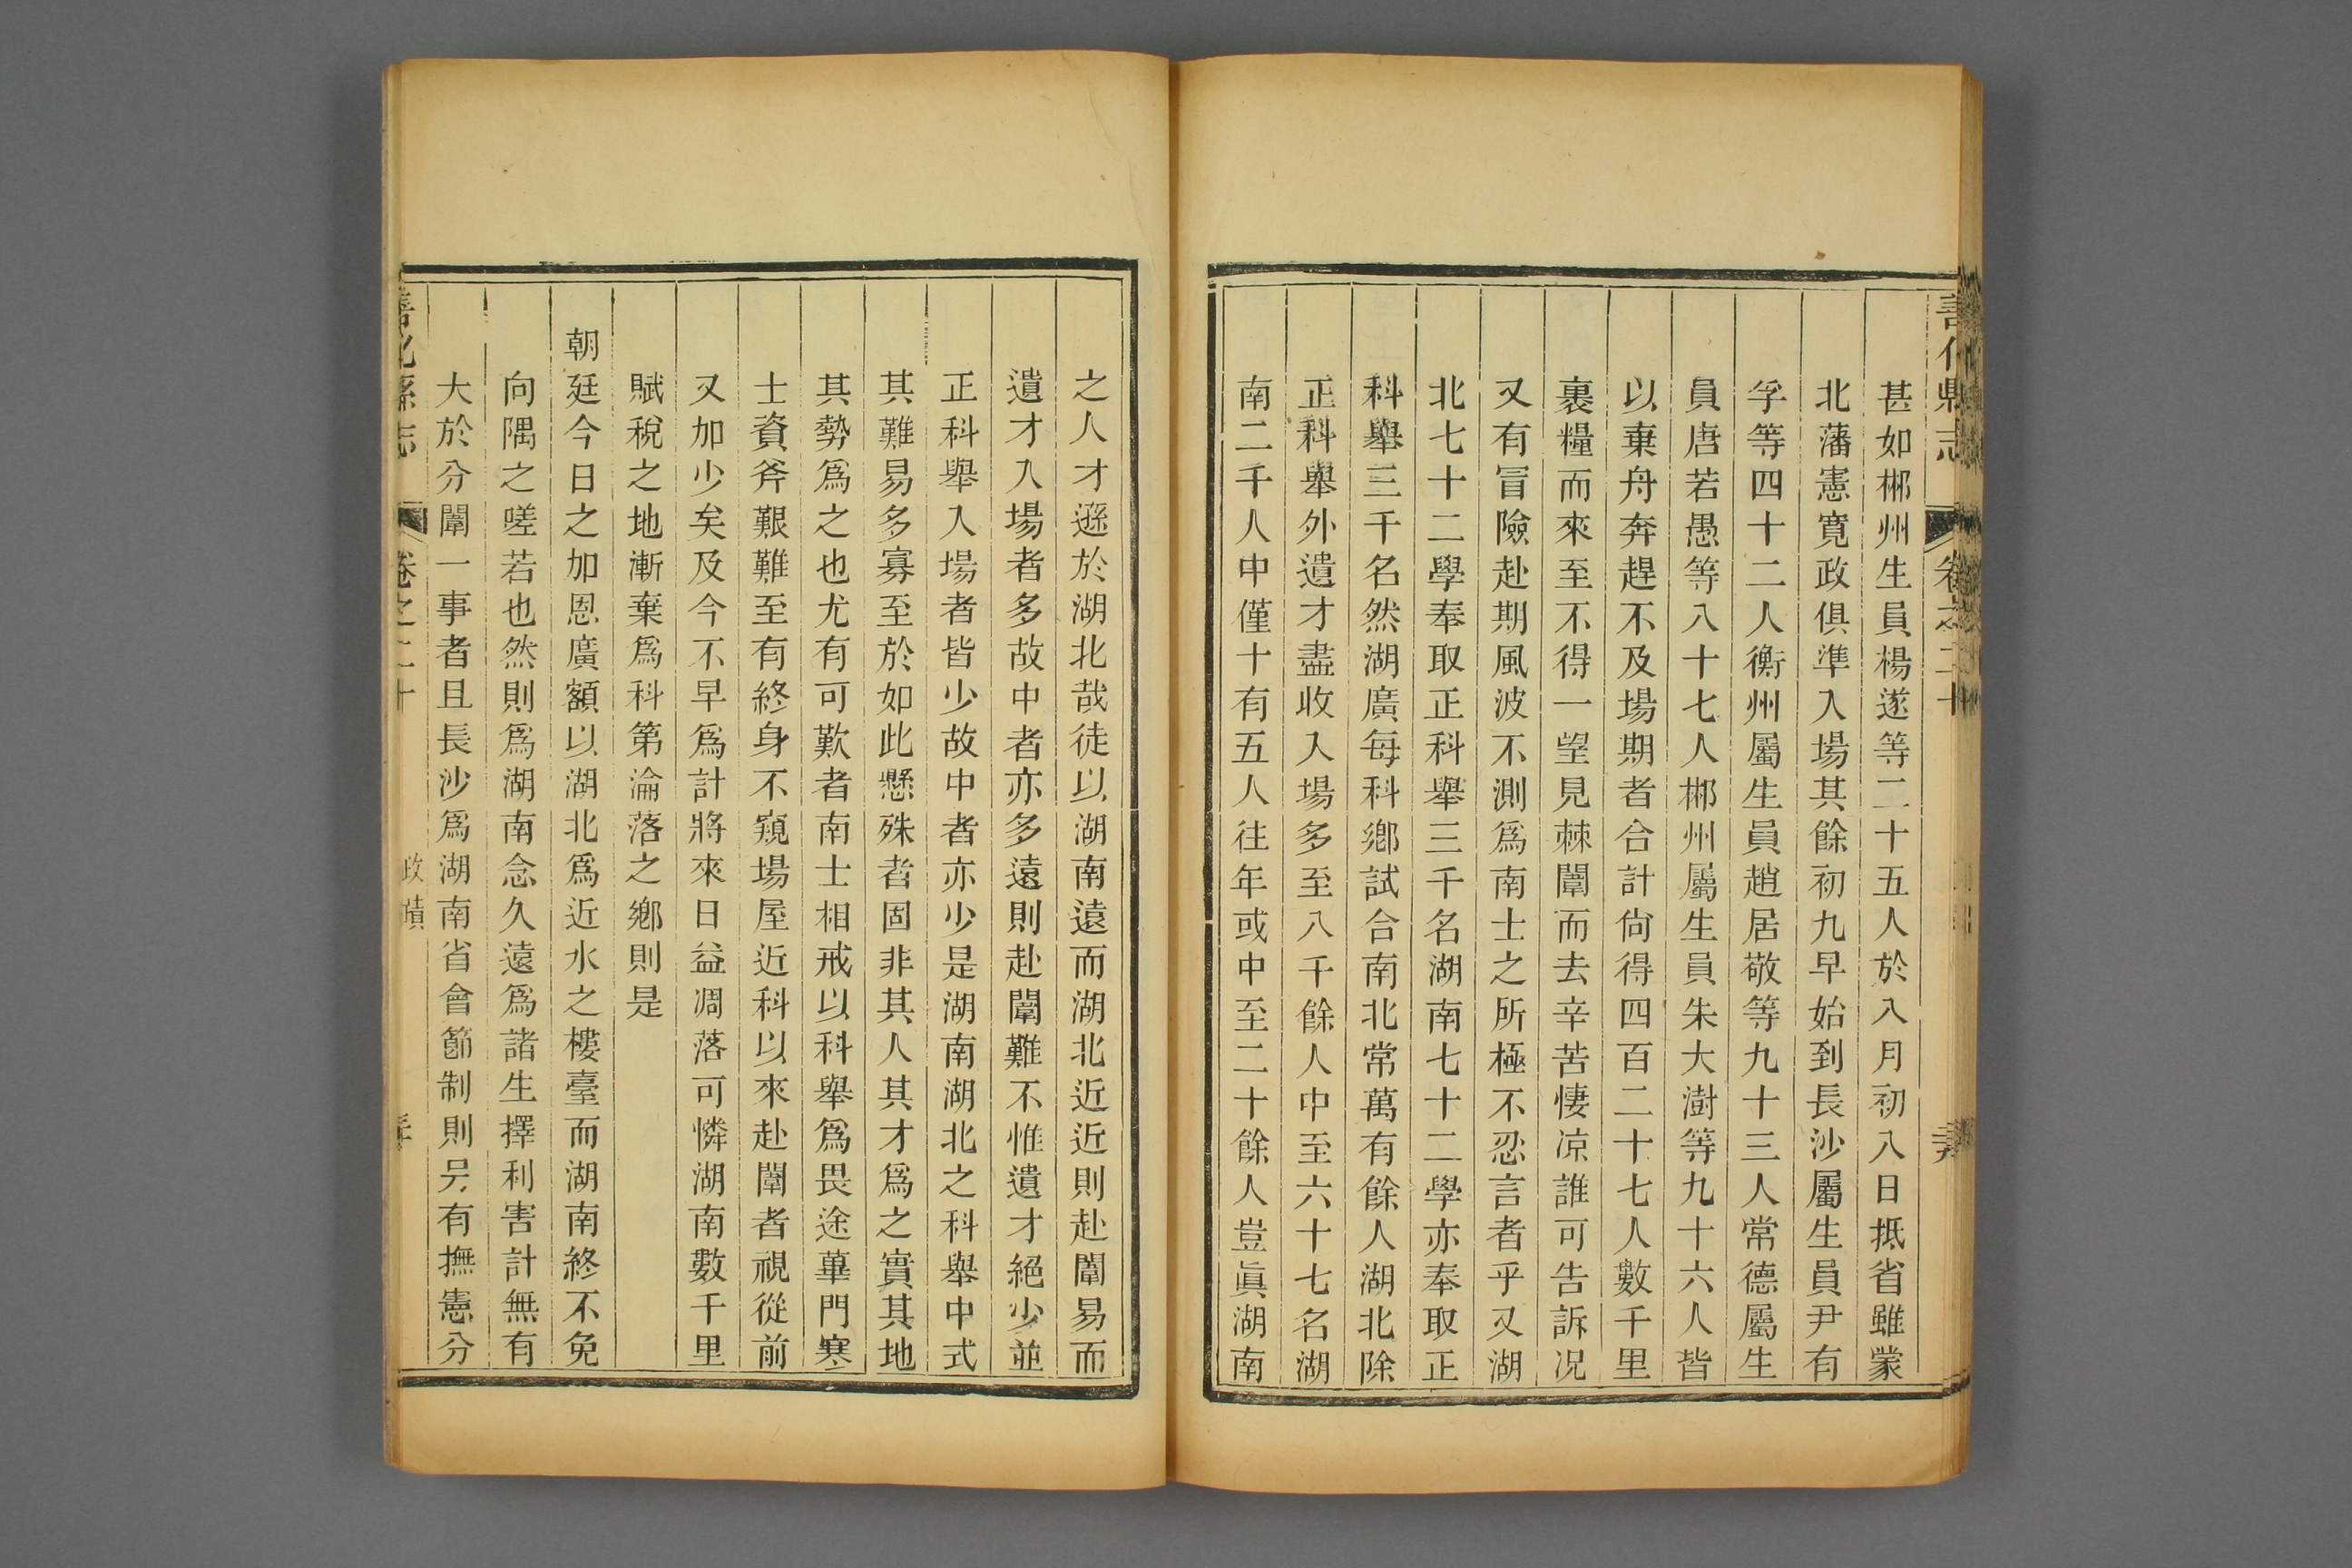 善化縣志
卷之二十
甚如郴州生員楊遂等二十五人於八月初八日抵省雖蒙
北藩憲寬政俱準入場其餘初九早始到長沙屬生員尹有
孚等四十二人衡州屬生員趙居敬等九十三人常德屬生
員唐若愚等八十七人郴州屬生員朱大澍等九十六人皆
以棄舟奔趕不及場期者合計尙得四百二十七人數千里
裹糧而來至不得一望見棘闈而去辛苦悽凉誰可告訴况
又有冒險赴期風波不測爲南士之所極不忍言者乎又湖
北七十二學奉取正科舉三千名湖南七十二學亦奉取正
科舉三千名然湖廣每科鄕試合南北常萬有餘人湖北除
正科舉外遺才盡收入場多至八千餘人中至六十七名湖
南二千人中僅十有五人往年或中至二十餘人豈眞湖南
之人才遜於湖北哉徒以湖南遠而湖北近近則赴闈易而
遺才入場者多故中者亦多遠則赴闈難不惟遺才絕少並
正科舉入場者皆少故中者亦少是湖南湖北之科舉中式
其難易多寡至於如此懸殊者固非其人其才爲之實其地
其勢爲之也尤有可歎者南士相戒以科舉爲畏途蓽門寒
士資斧艱難至有終身不窺場屋近科以來赴闈者視從前
又加少矣及今不早爲計將來日益凋落可憐湖南數千里
賦稅之地漸棄爲科第淪落之鄕則是
朝廷今日之加恩廣額以湖北爲近水之樓臺而湖南終不免
向隅之嗟若也然則爲湖南念久遠爲諸生擇利害計無有
大於分闈一事者且長沙爲湖南省會節制則另有撫憲分
善化縣志
卷之二十
政蹟